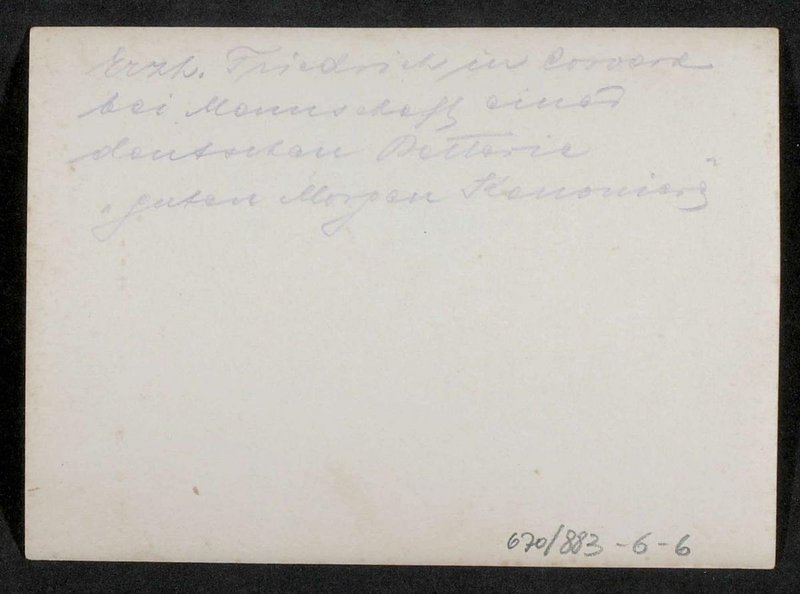 Erzh. Friedrich in Corvara
bei Mannschaft einer
deutschen Batterie
„guten Morgen Kanoniere"
670/883-6-6